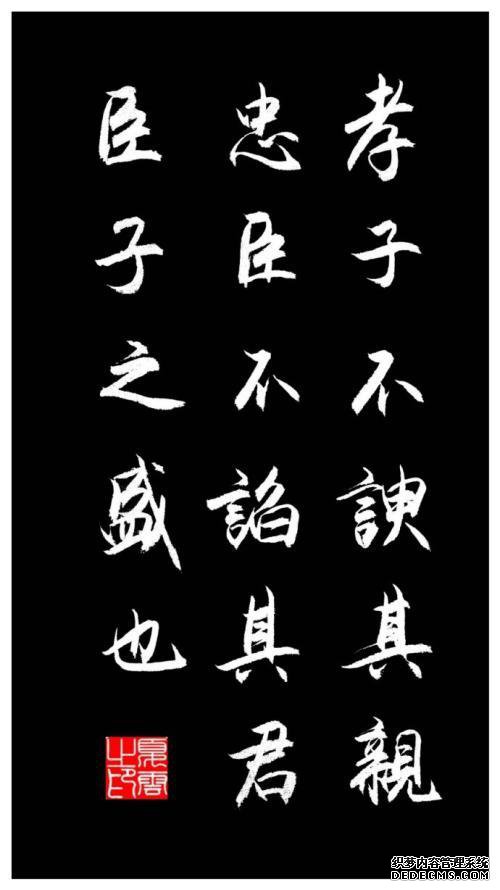 孝子不諛其親
忠臣不諂其君
臣子之盛也
织梦内容管理系统
DEDECMS.COM